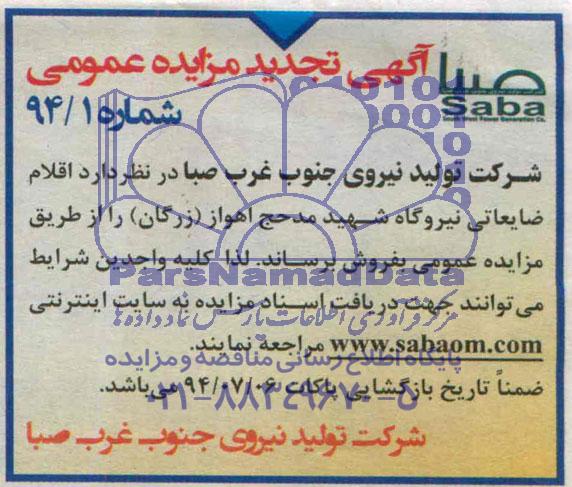 آگهی تجدید مزایده عمومی
شماره ۹۴/۱
صبا
Saba
شرکت تولید نیروی جنوب غرب صبا در نظر دارد اقلام
ضایعاتی نیروگاه شهید مدحج اهواز (زرگان) را از طریق
مزایده عمومی بفروش برساند. لذا کلیه واجدین شرایط
می توانند جهت دریافت اسناد مزایده به سایت اینترنتی
www.sabaom.com مراجعه نمایند.
ضمناً تاریخ بازگشایی پاکات ۹۴/۰۷/۰۶ می باشد.
شرکت تولید نیروی جنوب غرب صبا
ParsNamadData
مرکز فرآوری اطلاعات پارس نماد داده ها
پایگاه اطلاع رسانی مناقصه و مزایده
۰۲۱-۸۸۳۴۹۶۷۰-۵